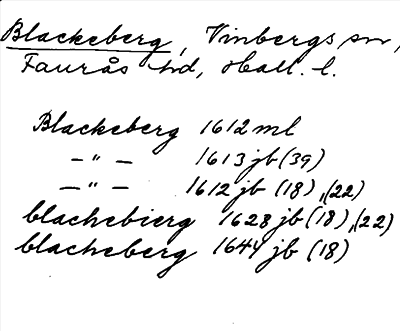 Blackeberg, Vinbergs sn,
Faurås hd, Hall. l.
Blackeberg 1612 ml
— " — 1613 jb (39)
— " — 1612 jb (18), (22)
blachebierg 1628 jb (18), (22)
blacheberg 1644 jb (18)